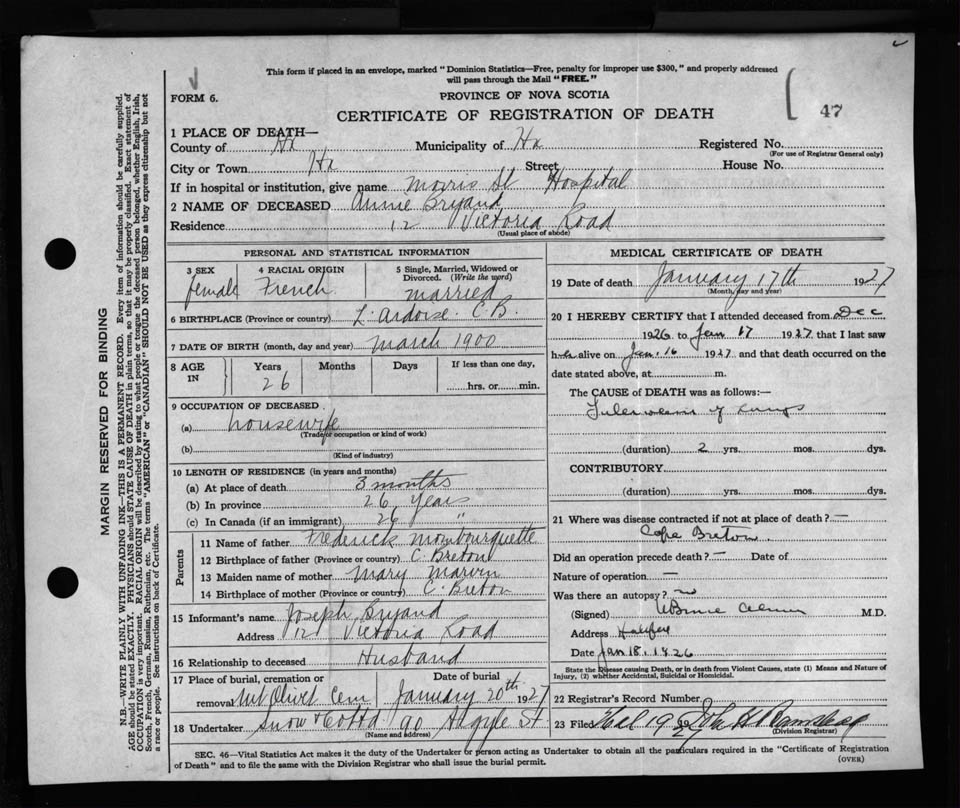 This form if placed in an envelope, marked "Dominion Statistics—Free, penalty for improper use $300," and properly addressed
will pass through the Mail "FREE."
FORM 6.
PROVINCE OF NOVA SCOTIA
47
CERTIFICATE OF REGISTRATION OF DEATH
1 PLACE OF DEATH—
County of Hx Municipality of Hx Registered No.
(For use of Registrar General only)
City or Town Hx Street House No.
If in hospital or institution, give name Morris St Hospital
2 NAME OF DECEASED Annie Bryand
Residence 12 Victoria Road
(Usual place of abode)
PERSONAL AND STATISTICAL INFORMATION
3 SEX 4 RACIAL ORIGIN 5 Single, Married, Widowed or
Divorced. (Write the word)
female French married
6 BIRTHPLACE (Province or country) L'ardoise. C B.
7 DATE OF BIRTH (month, day and year) March 1900
8 AGE IN Years Months Days If less than one day,
26 hrs. or min.
9 OCCUPATION OF DECEASED
(a) housewife
(Trade or occupation or kind of work)
(b)
(Kind of industry)
10 LENGTH OF RESIDENCE (in years and months)
(a) At place of death 3 months
(b) In province 26 years
(c) In Canada (if an immigrant) 26 "
Parents
11 Name of father Frederick Mombourquette
12 Birthplace of father (Province or country) C. Breton
13 Maiden name of mother Mary Marvin
14 Birthplace of mother (Province or country) C. Breton
15 Informant's name Joseph Bryand
Address 12 Victoria Road
16 Relationship to deceased Husband
17 Place of burial, cremation or removal Mt Olivet Cem
Date of burial January 20th 1927
18 Undertaker Snow & Co Ltd 90 Argyle St
(Name and address)
MEDICAL CERTIFICATE OF DEATH
19 Date of death January 17th 1927
(Month, day and year)
20 I HEREBY CERTIFY that I attended deceased from Dec
1926 to Jan 17 1927 that I last saw
her alive on Jan. 16 1927 and that death occurred on the
date stated above, at m.
The CAUSE OF DEATH was as follows:—
Tuberculosis of Lungs
(duration) 2 yrs. mos. dys.
CONTRIBUTORY
(duration) yrs. mos. dys.
21 Where was disease contracted if not at place of death? —
Cape Breton
Did an operation precede death? — Date of
Nature of operation —
Was there an autopsy? no
(Signed) M.D.
Address Halifax
Date Jan 18. 1926
State the Disease causing Death, or in death from Violent Causes, state (1) Means and Nature of
Injury, (2) whether Accidental, Suicidal or Homicidal.
22 Registrar's Record Number
23 Filed 19 John
27
(Division Registrar)
SEC. 46—Vital Statistics Act makes it the duty of the Undertaker or person acting as Undertaker to obtain all the particulars required in the "Certificate of Registration
of Death" and to file the same with the Division Registrar who shall issue the burial permit.
(OVER)
MARGIN RESERVED FOR BINDING
N.B.—WRITE PLAINLY WITH UNFADING INK—THIS IS A PERMANENT RECORD. Every item of information should be carefully supplied.
AGE should be stated EXACTLY. PHYSICIANS should STATE CAUSE OF DEATH in plain terms, so that it may be properly classified. Exact statement of
OCCUPATION is very important. RACIAL ORIGIN will be described by stating to what people or tongue the deceased person belonged, whether English, Irish,
Scotch, French, German, Russian, Ruthenian, etc. The terms "AMERICAN" or "CANADIAN" SHOULD NOT BE USED as they express citizenship but not
a race or people. See instructions on back of Certificate.